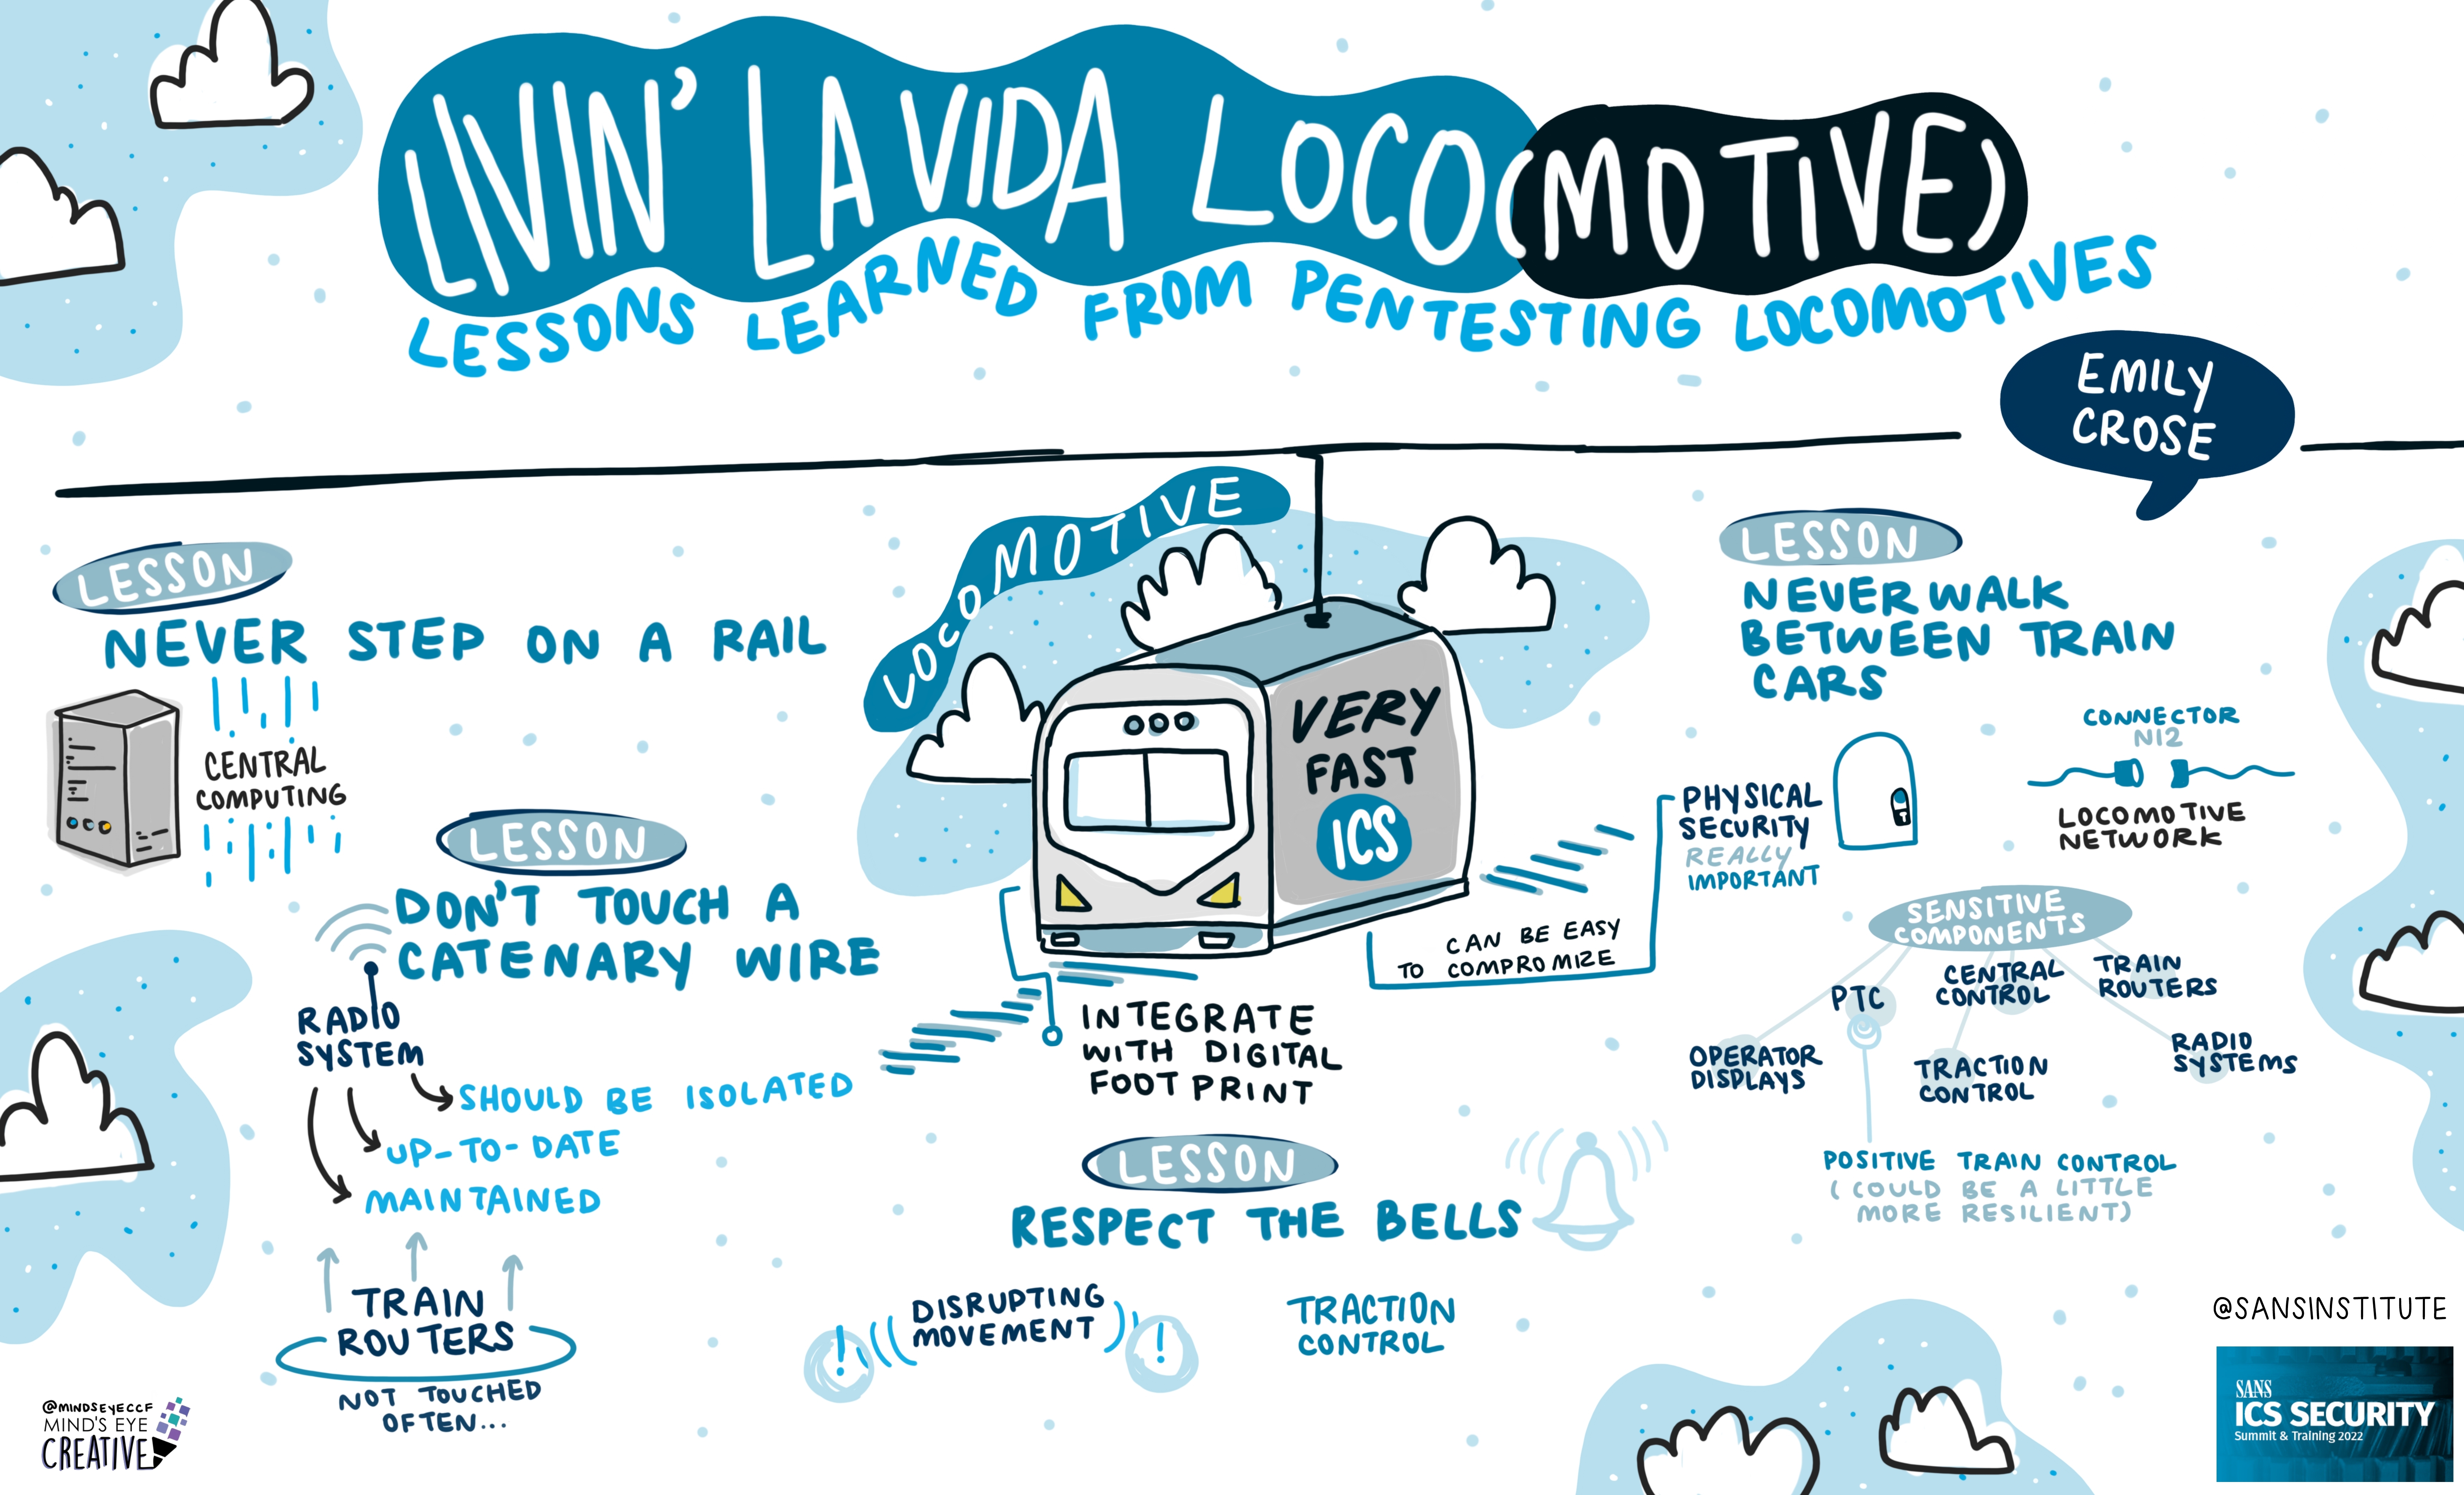 LIVIN' LA VIDA LOCO(MOTIVE)
LESSONS LEARNED FROM PENTESTING LOCOMOTIVES
EMILY
CROSE
LESSON
NEVER STEP ON A RAIL
CENTRAL
COMPUTING
LESSON
DON'T TOUCH A
CATENARY WIRE
RADIO
SYSTEM
SHOULD BE ISOLATED
UP-TO-DATE
MAINTAINED
TRAIN
ROUTERS
NOT TOUCHED
OFTEN...
LOCOMOTIVE
VERY
FAST
ICS
CAN BE EASY
TO COMPROMIZE
INTEGRATE
WITH DIGITAL
FOOTPRINT
LESSON
RESPECT THE BELLS
!
DISRUPTING
MOVEMENT
!
TRACTION
CONTROL
LESSON
NEVER WALK
BETWEEN TRAIN
CARS
PHYSICAL
SECURITY
REALLY
IMPORTANT
CONNECTOR
N12
LOCOMOTIVE
NETWORK
SENSITIVE
COMPONENTS
OPERATOR
DISPLAYS
PTC
CENTRAL
CONTROL
TRACTION
CONTROL
TRAIN
ROUTERS
RADIO
SYSTEMS
POSITIVE TRAIN CONTROL
(COULD BE A LITTLE
MORE RESILIENT)
@MINDSEYECCF
MIND'S EYE
CREATIVE
@SANSINSTITUTE
SANS
ICS SECURITY
Summit & Training 2022